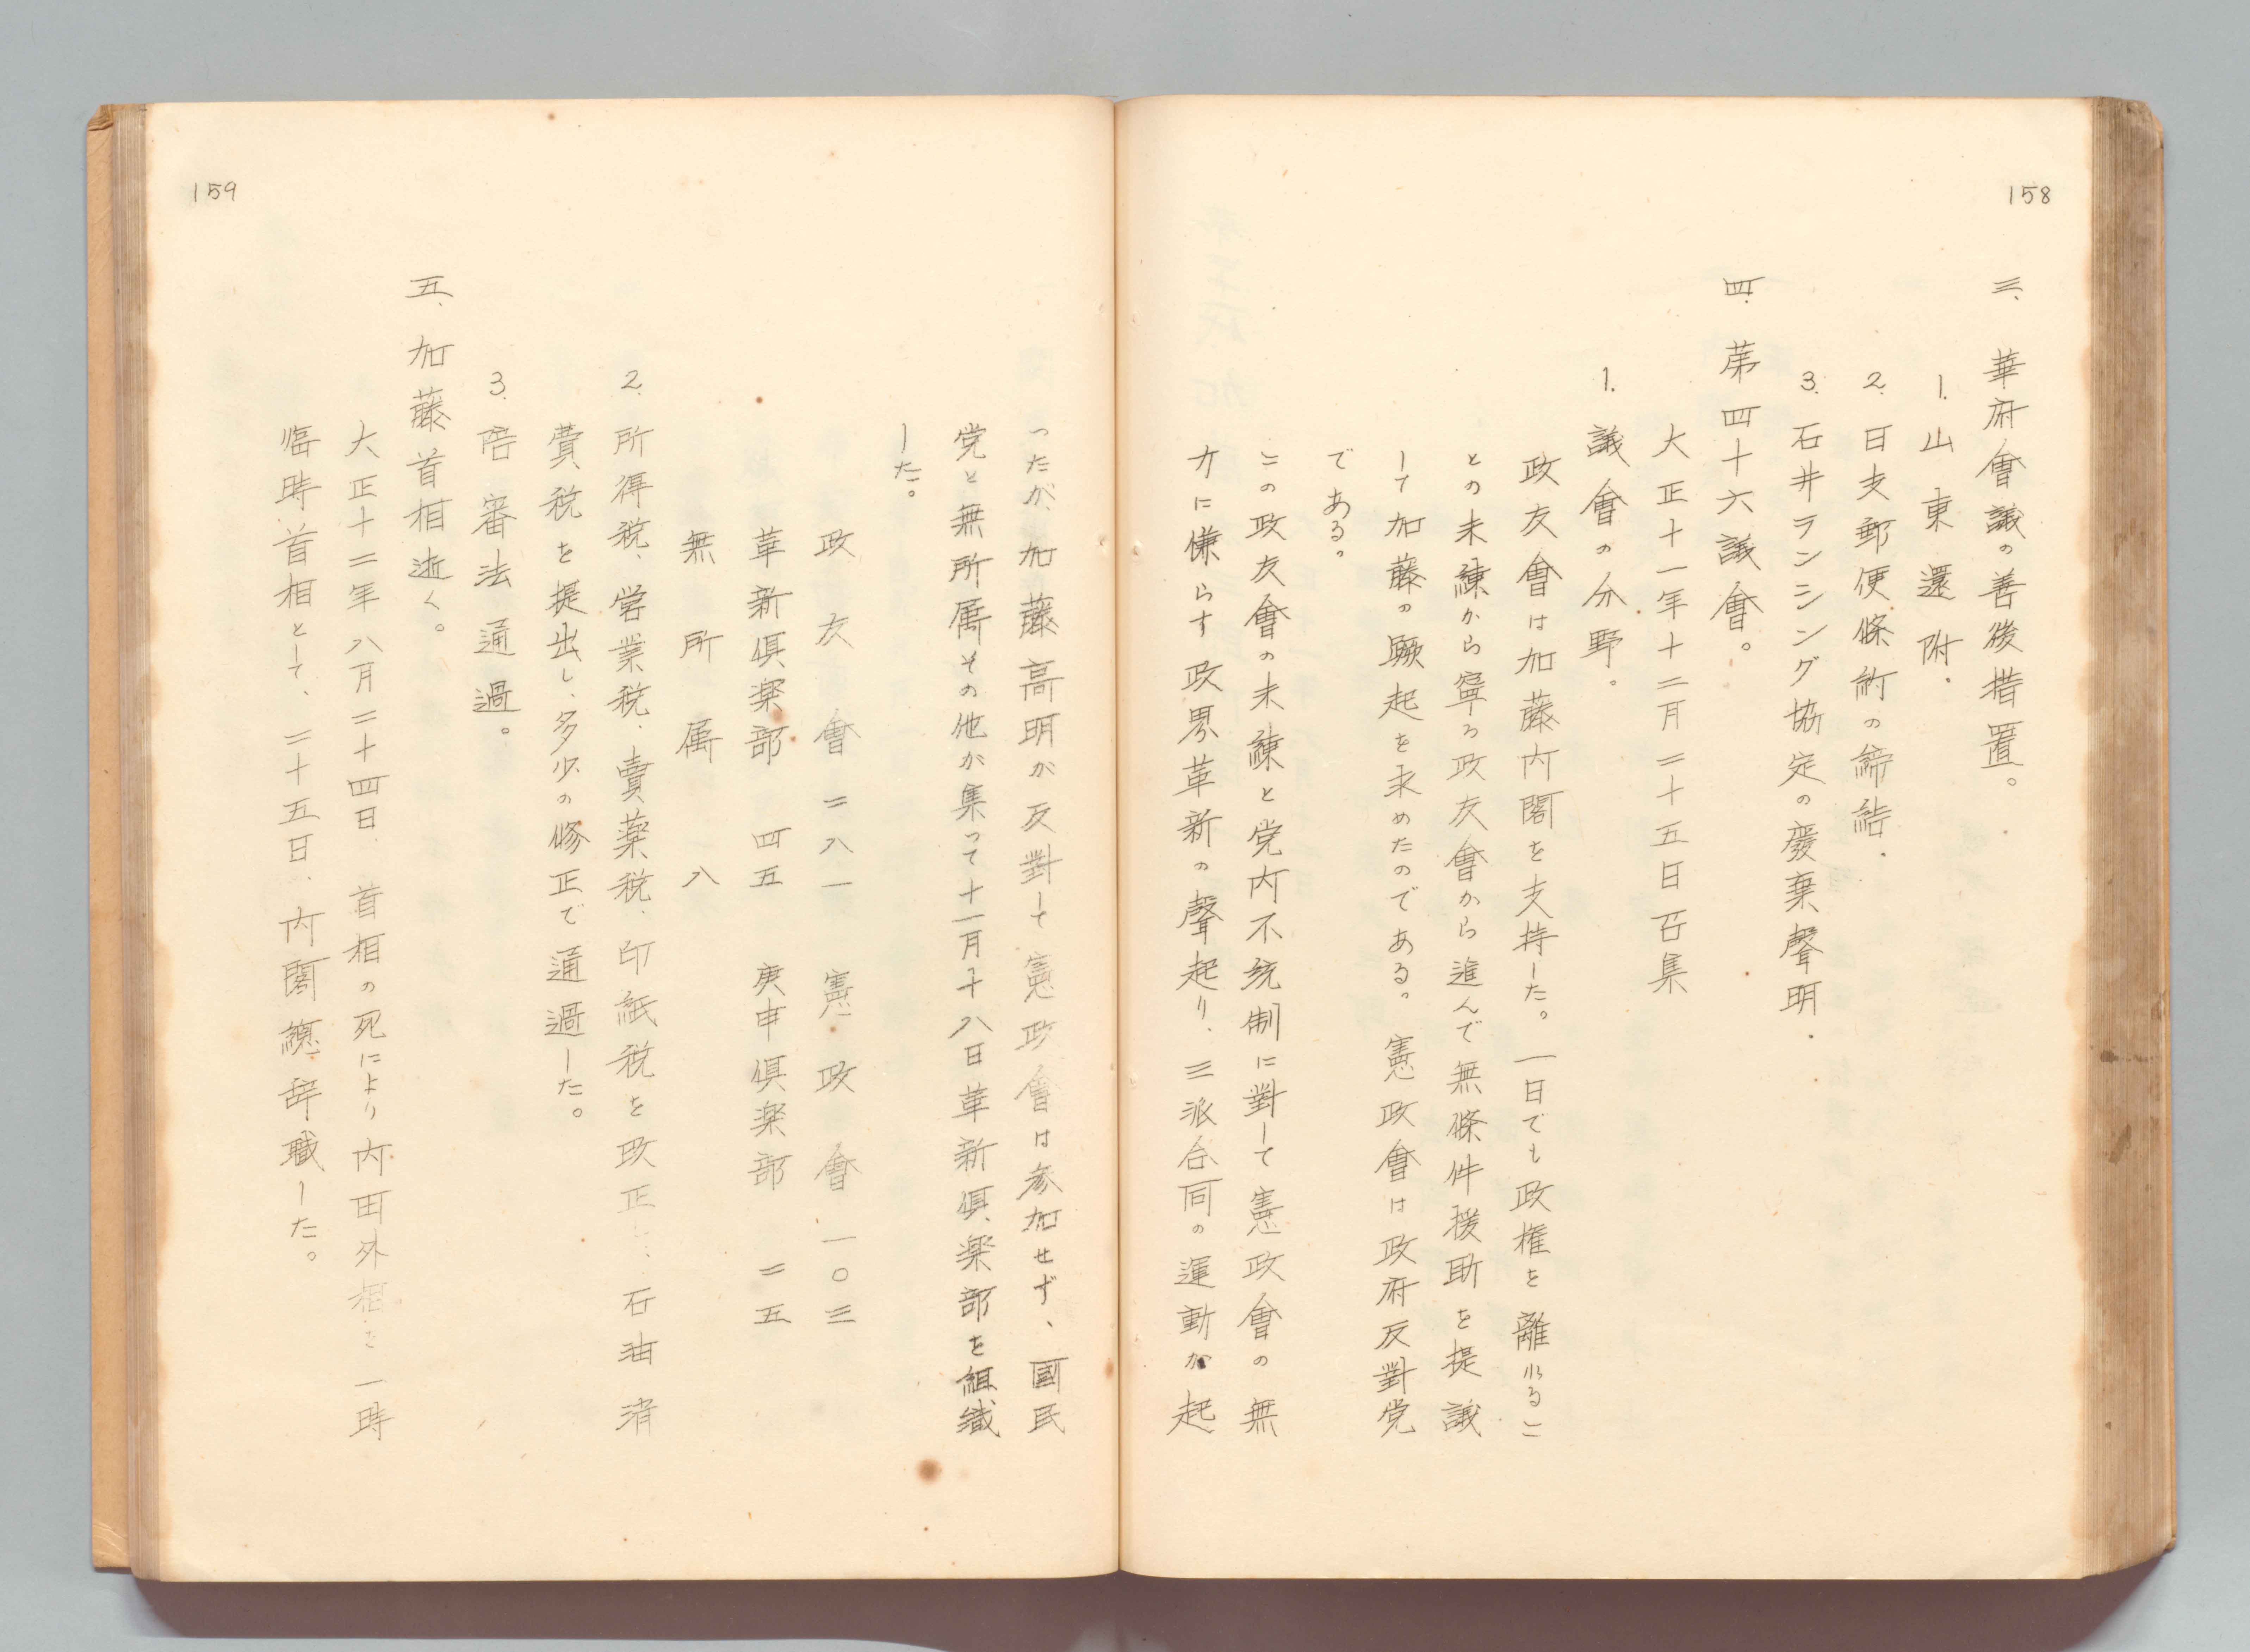 158
三、華府會議の善後措置。
1. 山東還附.
2. 日支郵便條約の締結.
3. 石井ランシング協定の廢棄聲明.
四. 第四十六議會。
大正十一年十二月二十五日召集
1. 議會の分野。
政友會は加藤内閣を支持した。一日でも政権を離れるこ
との未練から寧ろ政友會から進んで無條件援助を提議
して加藤の蹶起を求めたのである。憲政會は政府反對党
である。
この政友會の未練と党内不統制に對して憲政會の無
力に慊らす政界革新の聲起り、三派合同の運動が起
159
ったが、加藤高明が反對して憲政會は参加せず、國民
党と無所属その他が集って十一月十八日革新倶楽部を組織
した。
政友會 二八一 憲政會 一〇三
革新倶楽部 四五 庚申倶楽部 二五
無所属 八
2. 所得税、営業税、賣薬税、印紙税を改正し、石油消
費税を提出し、多少の修正で通過した。
3. 陪審法通過。
五、加藤首相逝く。
大正十二年八月二十四日、首相の死により内田外相を一時
臨時首相として、二十五日、内閣總辞職した。